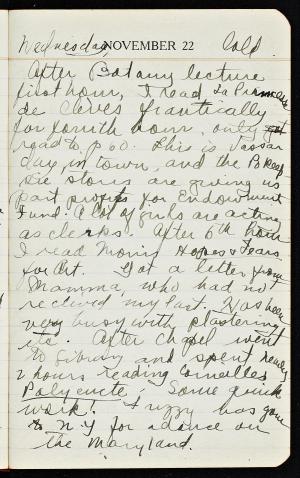 Wednesday, NOVEMBER 22 Cold.
After Botany lecture
first hour, I read La Princesse
de Cleves frantically
for fourth hour, only got
road to p 60. This is Vassar
day, in town, and the Pokeep
sie stores are giving us
part profits for Endowment
Fund. A lot of girls are acting
as clerks. After 6th hour
I read Morris Hopes & Fears
for Art. Got a letter from
Mamma, who had not
received my last. Has been
very busy with plastering
etc. After chapel went
to Library and spent nearly
2 hours reading Corneille's
Polyeucte. Some quick
work. Fuzzy has gone
to N.Y for a dance on
the Maryland.